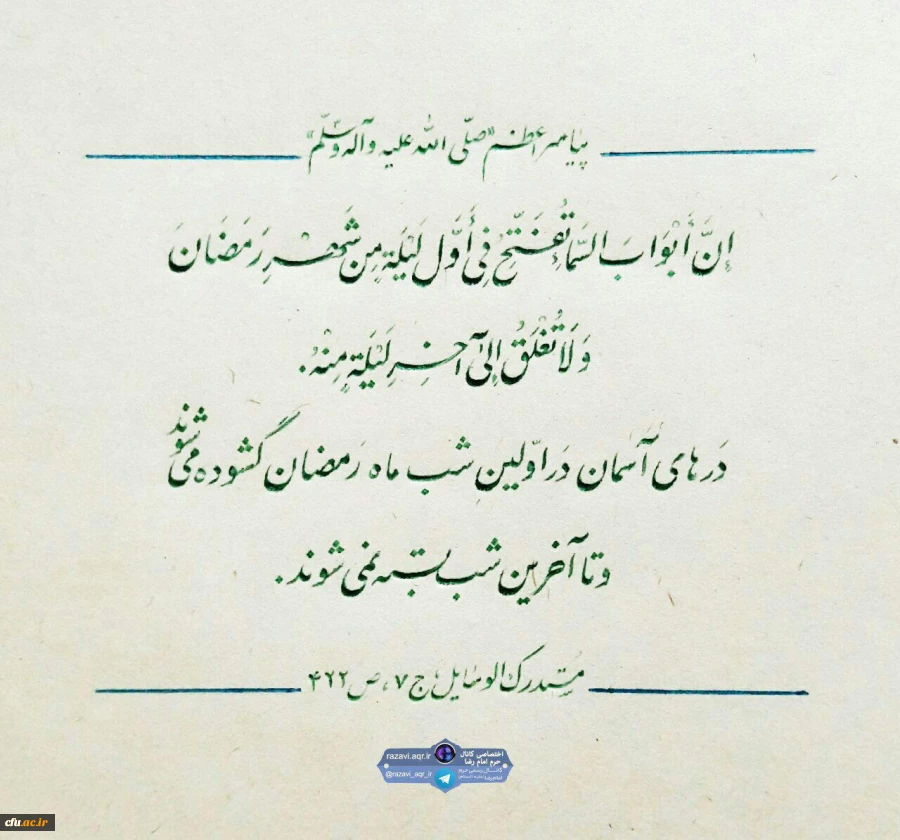 پیامبر اعظم «صلّی الله علیه وآله وسلّم»
إِنَّ أَبْوَابَ السَّمَاءِ تُفَتَّحُ فِی أَوَّلِ لَیْلَةٍ مِن شَهْرِ رَمَضَانَ
وَلَا تُغْلَقُ إِلیٰ آخِرِ لَیْلَةٍ مِنْهُ.
دَرهای آسمان دَر اوّلینِ شب ماه رَمضان گشوده می‌شوند
وتا آخرین شب بسته نمی شوند.
مستدرک الوسایل، ج ۷، ص ۴۲۲
اختصاصی کانال
حرم امام رضا
razavi.aqr.ir
@razavi_aqr_ir
cfu.ac.ir